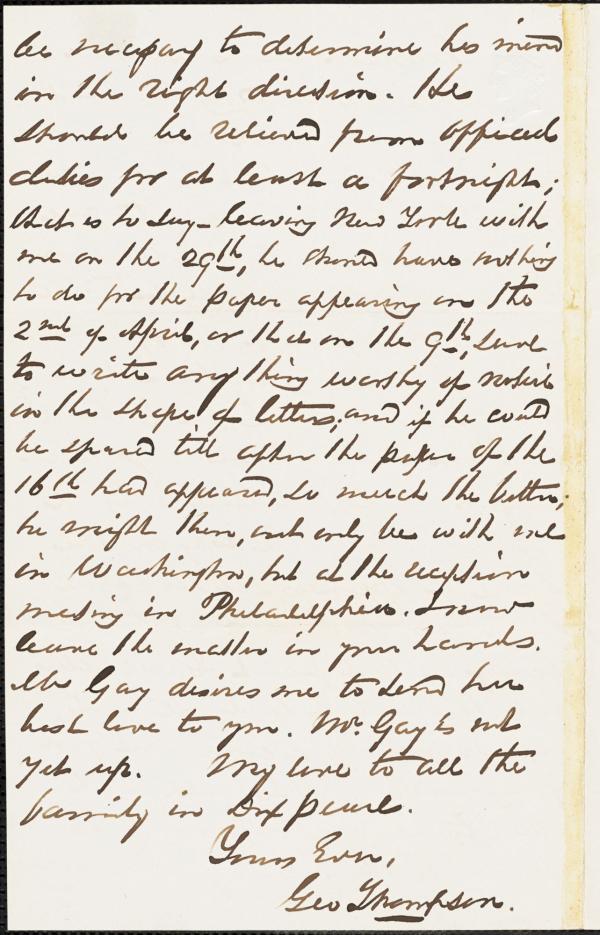 be necessary to determine his mind
in the right direction. He
should be relieved from official
duties for at least a fortnight;
that is to say - leaving New York with
me on the 29th, he should have nothing
to do for the paper appearing on the
2nd of April, or that on the 9th, save
to write any thing worthy of notice
in the shape of letters; and if he could
be spared till after the paper of the
16th had appeared, so much the better;
he might then, not only be with me
in Washington, but at the reception
meeting in Philadelphia. I now
leave the matter in your hands.
Mrs Gay desires me to send her
best love to you. Mr. Gay is not
yet up. My love to all the
family in Dix place.
Yours Ever,
Geo Thompson.